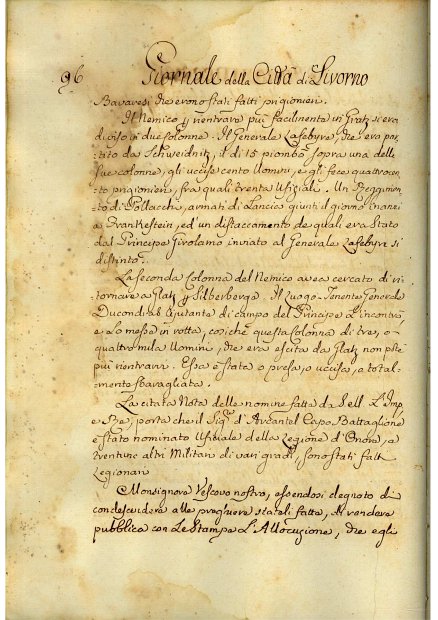 96 Giornale della Città di Livorno
Bavaresi che erono stati fatti prigionieri.
Il Nemico p rientrare più facilmente in Glatz si era
diviso in due colonne. Il Generale Lafebvre, che era par-
tito da Schweidnitz, il dì 15 piombò sopra una delle
sue colonne, gli uccise cento Uomini, e gli fece quattrocen-
to prigionieri, fra quali trenta Ufiziali. Un Reggimen-
to di Pollacchi, armati di Lancia giunti il giorno inanzi
a Frankestein, ed'un distaccamento de quali era stato
dal Principe Girolamo inviato al Generale Lafebyre si
distinto.
La seconda Colonna del Nemico avea cercato di ri-
tornare a Glatz p Silberberga. Il Luogo-Tenente Generale
Ducondras Ajutante di campo del Principe L'incontrò
e Lo messe in rotta, cosichè questa colonna di tre, o
quattro mila Uomini, che era escita da Glatz non potè
più rientrarvi. Essa è stata o presa, o uccisa, o total-
mente sbaragliata.
La citata Nota delle nomine fatta da Sell. L'Imp
e Re, porta che il Sig. d'Arcantel Capo Battaglione
è stato nominato Ufiziale della Legione d'Onore, e
trentune altri Militari di vari gradi, sono stati fatti
Legionari
Monsignore Vescovo nostro, essendosi degnato di
condescendere alle preghiere stateli fatte, di rendere
pubblica con Le Stampe L'Allocuzione, che egli